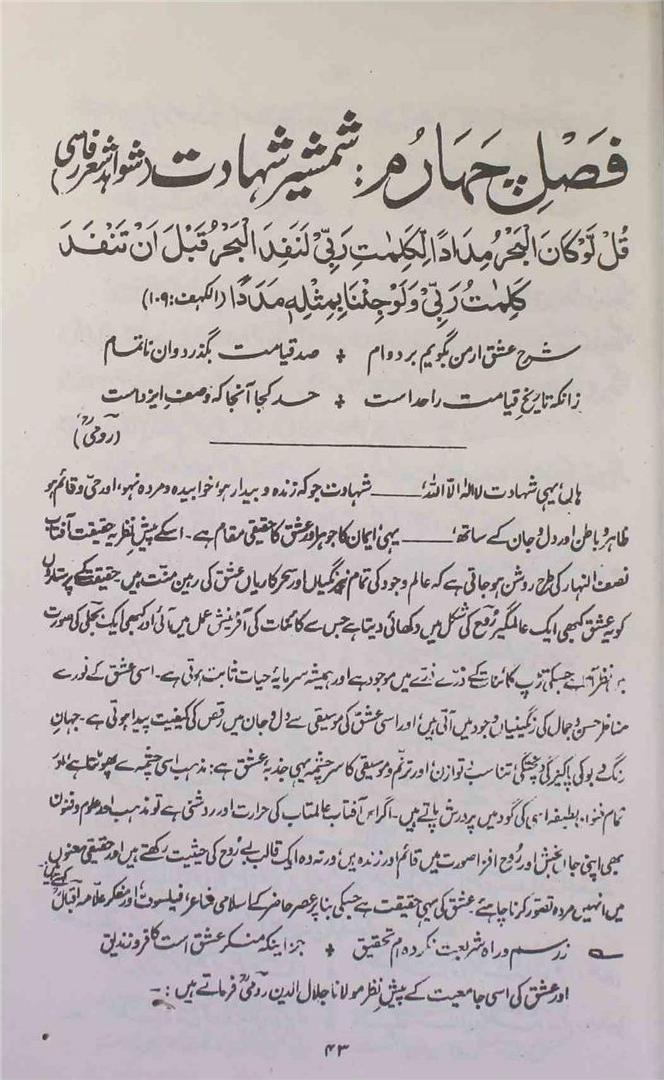 فَصْلِ چَہَارُم: شمشیرِ شہادت (شواہدِ شعرِ فارسی)
قُلْ لَّوْ کَانَ الْبَحْرُ مِدَادًا لِّکَلِمٰتِ رَبِّیْ لَنَفِدَ الْبَحْرُ قَبْلَ اَنْ تَنْفَدَ
کَلِمٰتُ رَبِّیْ وَلَوْ جِئْنَا بِمِثْلِہٖ مَدَدًا (الکہف: ۱۰۹)
شرحِ عشق ار من بگویم بر دوام + صد قیامت بگذرد وان ناتمام
زانکہ تاریخِ قیامت را حد است + حد کجا آنجا کہ وصفِ ایزد است
(رومیؒ)
ہاں! یہی شہادت لا الٰہ الّا اللہ، ــــــ شہادت جو کہ زندہ و بیدار ہو، خوابیدہ و مردہ نہو، اور حیّ و قائم ہو
ظاہر و باطن اور دل و جان کے ساتھ، ــــــ یہی ایمان کا جوہر اور عشق کا حقیقی مقام ہے۔ اسکے پیشِ نظر یہ حقیقت آفتاب
نصف النہار کی طرح روشن ہو جاتی ہے کہ عالمِ وجود کی تمام نیرنگیاں اور سحر کاریاں عشق کی رہینِ منّت ہیں۔ حقیقت کے پرستاروں
کو یہ عشق کبھی ایک عالمگیر رُوح کی شکل میں دکھائی دیتا ہے جس سے کائنات کی آفرینش عمل میں آئی اور کبھی ایک بجلی کی صورت
میں نظر آتا ہے جسکی تڑپ کائنات کے ذرّے ذرّے میں موجود ہے اور ہمیشہ سرمایۂ حیات ثابت ہوتی ہے۔ اسی عشق کے نور سے
مناظرِ حسن و جمال کی رنگینیاں وجود میں آتی ہیں؛ اور اسی عشق کی موسیقی سے دل و جان میں رقص کی کیفیت پیدا ہوتی ہے۔ جہانِ
رنگ و بو کی پاکیزگی و پختگی، تناسب و توازن اور ترنّم و موسیقی کا سرچشمہ یہی جذبۂ عشق ہے: مذہب اسی چشمہ سے پھوٹتا ہے، اور
تمام فنونِ لطیفہ اسی کی گود میں پرورش پاتے ہیں۔ اگر اس آفتابِ عالمتاب کی حرارت اور روشنی ہے تو مذہب اور علوم و فنون
بھی اپنی جاں بخش اور رُوح افزا صورت میں قائم اور زندہ ہیں؛ ورنہ وہ ایک قالبِ بے رُوح کی حیثیت رکھتے ہیں اور حقیقی معنوں
میں انہیں مردہ تصور کرنا چاہئے۔ عشق کی یہی حقیقت ہے جسکی بنا پر عصرِ حاضر کا اسلامی شاعر، فیلسوف، اور مفکر علّامہ اقبالؒ کہتے ہیں:
ز رسم و راہِ شریعت نکردہ ام تحقیق + جز اینکہ منکرِ عشق است کافر و زندیق
اور عشق کی اسی جامعیت کے پیشِ نظر مولانا جلال الدین رومیؒ فرماتے ہیں :۔
۴۳